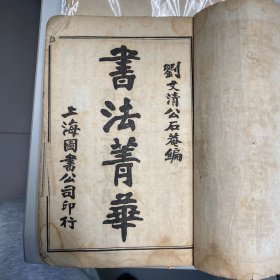 劉文清公石菴編
書法菁華
上海圖書公司印行